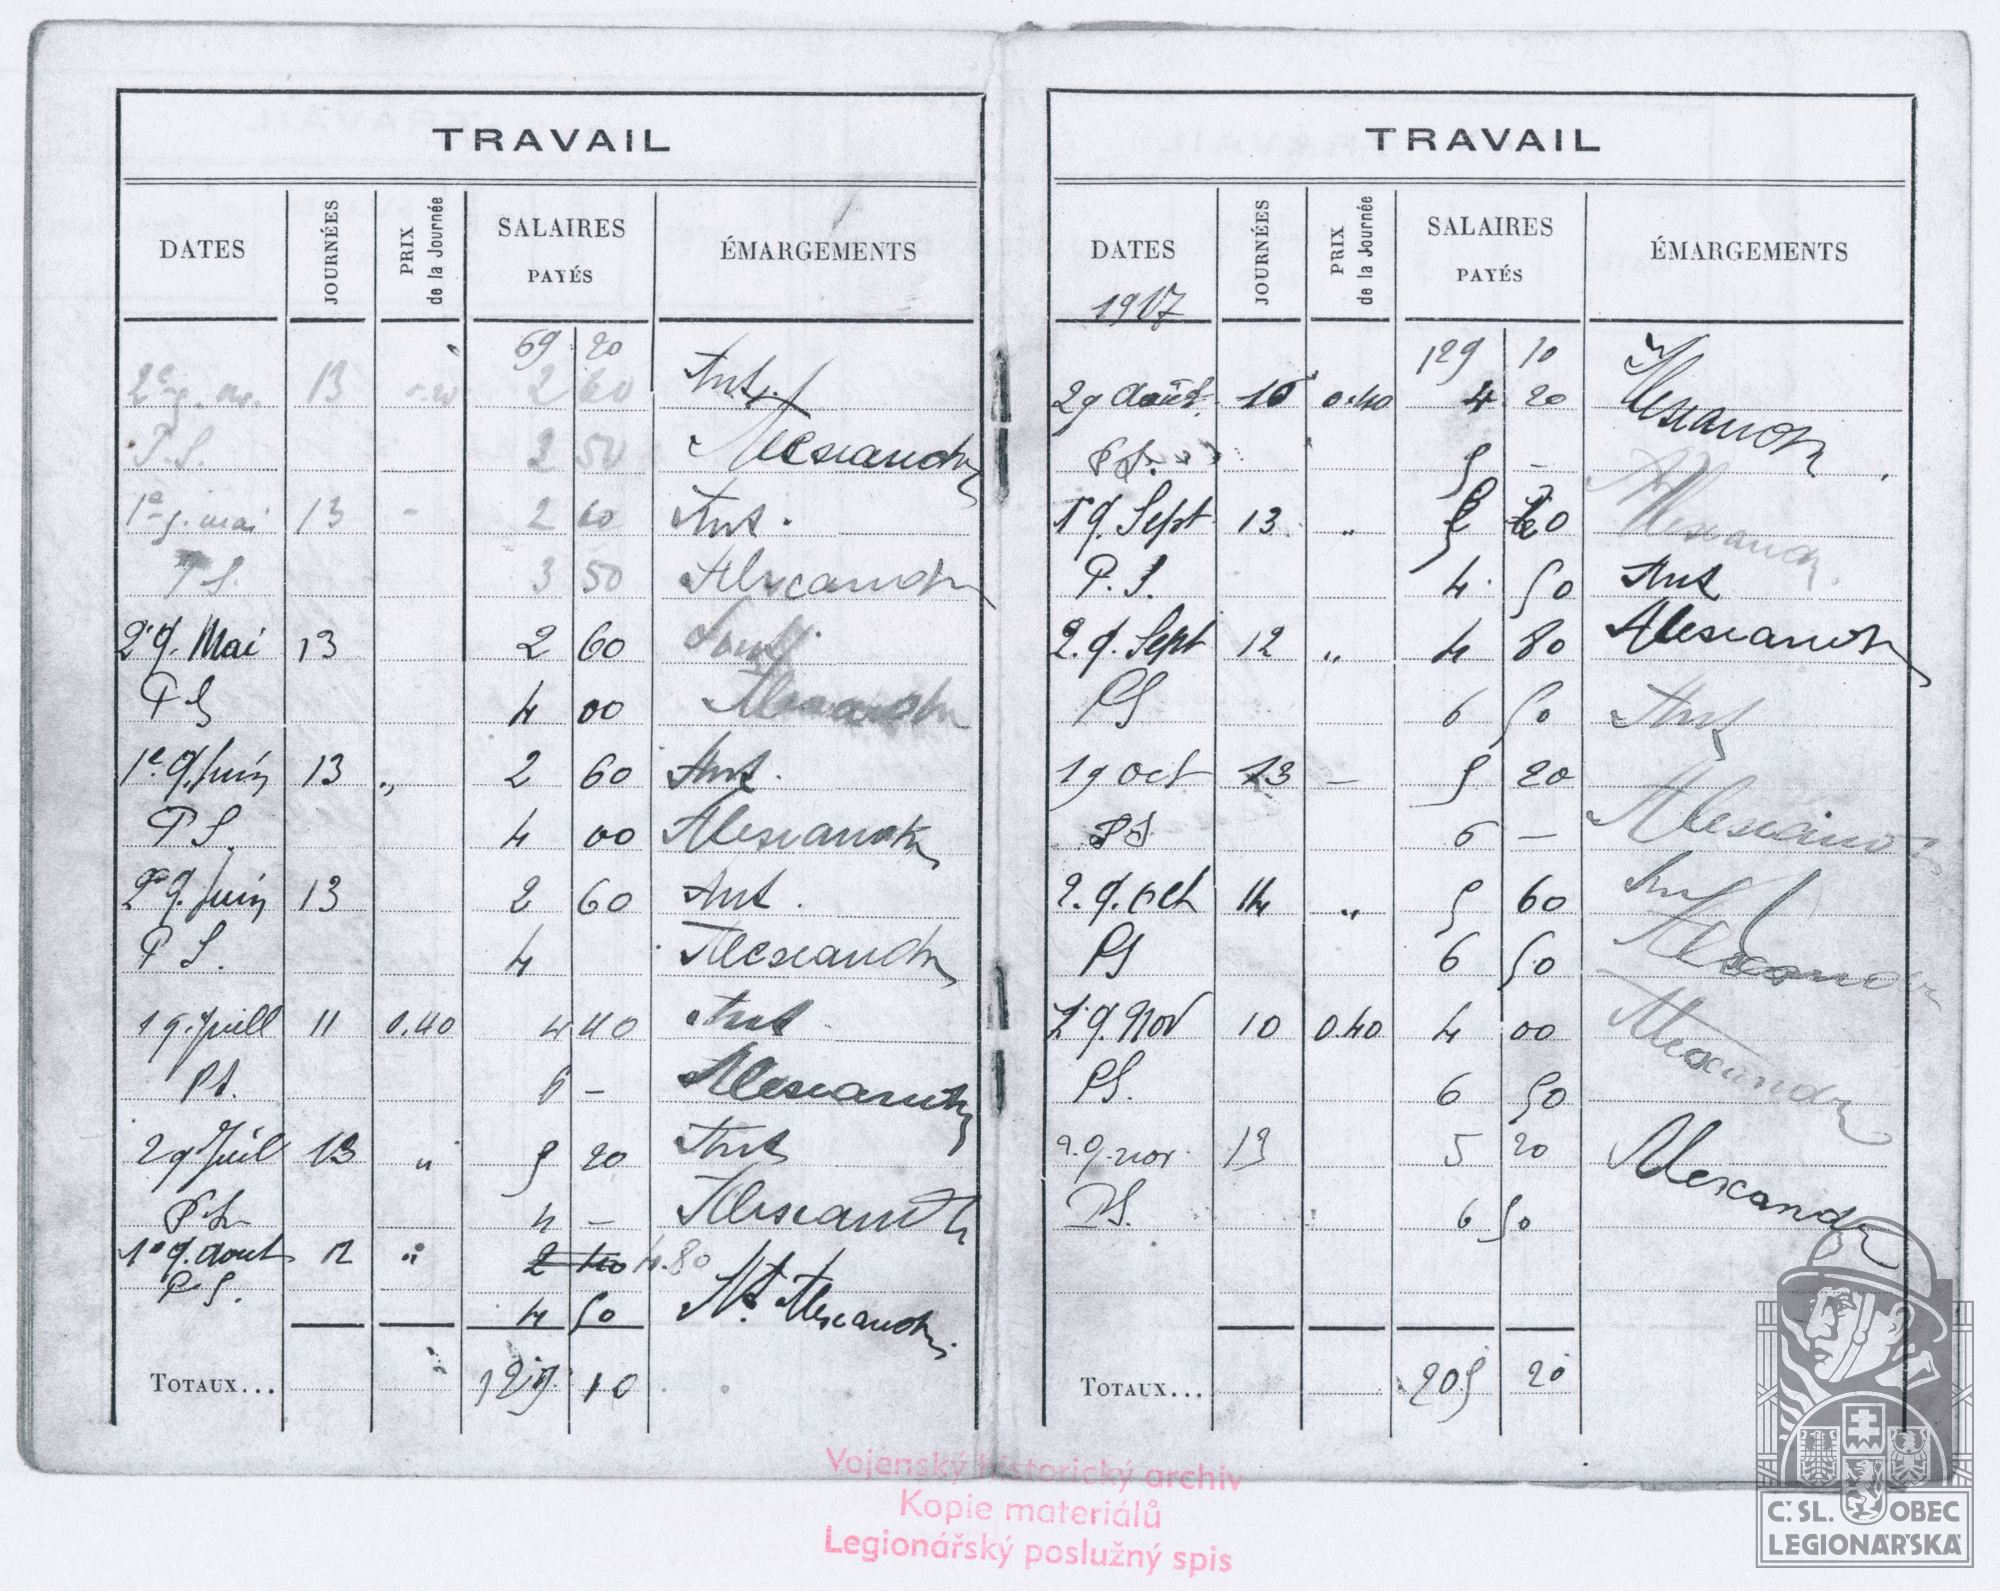 TRAVAIL
DATES JOURNÉES PRIX de la Journée SALAIRES PAYÉS ÉMARGEMENTS
69 20
2e q. av. 13 0.20 2 60 Ant.
P.S. 2 50 Alexandr
1e q. mai 13 - 2 60 Ant.
P S. 3 50 Alexandr
2e q. Mai 13 2 60
P S 4 00 Alexandr
1e q. Juin 13 „ 2 60 Ant.
P S. 4 00 Alexandr
2e q. Juin 13 2 60 Ant.
P S. 4 Alexandr
1 q. Juill 11 0.40 4 40 Ant
PS. 6 - Alexandr
2 q Juil 13 „ 5 20 Ant
P S 4 - Alexandr
1e q. Aout 12 „ 2 40 4.80
P S. 4 50 Ant. Alexandr
TOTAUX... 129 10
TRAVAIL
DATES JOURNÉES PRIX de la Journée SALAIRES PAYÉS ÉMARGEMENTS
1917
129 10
2 q Août. 10 0.40 4 20 Alexandr
P S. 5 -
1 q. Sept 13 „ 5 20 Alexandr
P. S. 4 50 Ant
2. q. Sept 12 „ 4 80 Alexandr
PS 6 50 Ant
1 q oct 13 - 5 20
PS 6 - Alexandr
2. q. oct 14 „ 5 60 Ant
PS 6 50 Alexandr
1. q. Nov 10 0.40 4 00 Alexandr
PS. 6 50
2. q. nov. 13 5 20 Alexandr
PS. 6 50
TOTAUX... 205 20
Vojenský historický archiv
Kopie materiálů
Legionářský poslužný spis
Č. SL. OBEC
LEGIONÁŘSKÁ